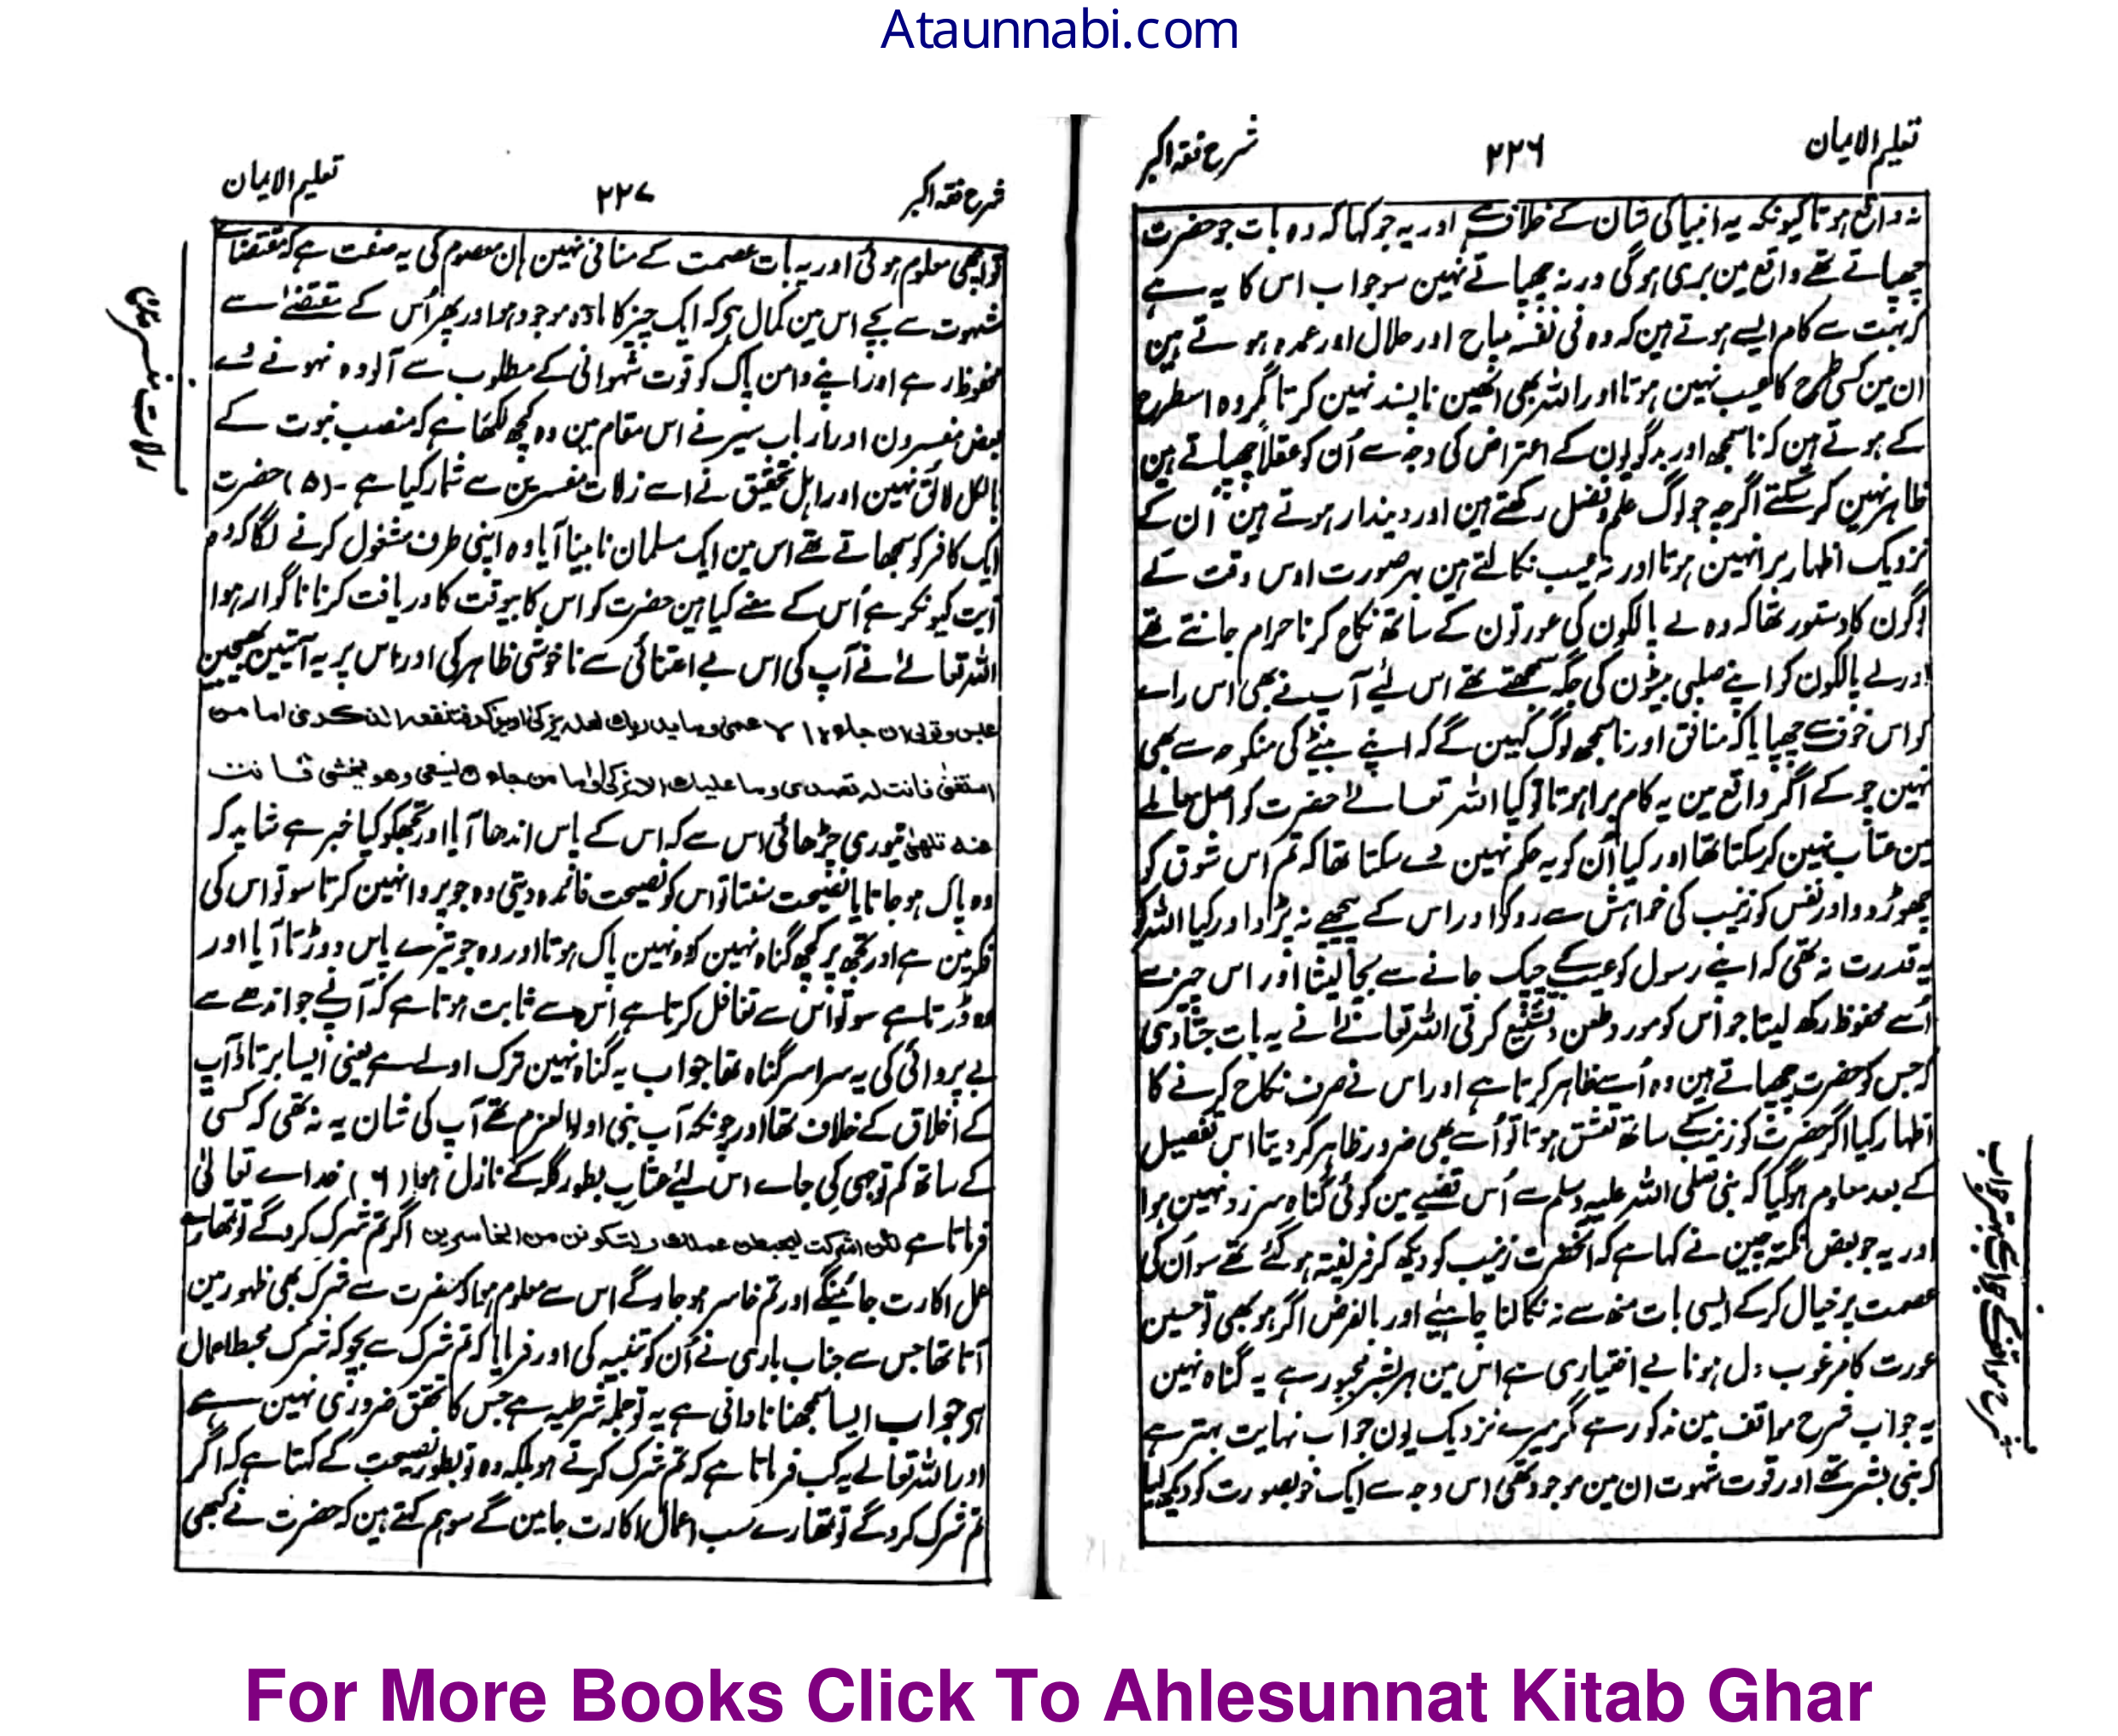 Ataunnabi.com
تعلیم الایمان ۲۲۶ شرح فقہ اکبر
نہ واقع ہوتا کیونکہ یہ انبیا کی شان کے خلاف ہے اور یہ جو کہا کہ وہ بات جو حضرت
چھپاتے تھے واقع مین بری ہوگی ورنہ چھپاتے نہین سو جواب اس کا یہ ہے
کہ بہت سے کام ایسے ہوتے ہین کہ وہ فی نفسہ مباح اور حلال اور عمدہ ہوتے ہین
ان مین کسی طرح کا عیب نہین ہوتا اور اللہ بھی انھین ناپسند نہین کرتا مگر وہ اسطرح
کے ہوتے ہین کہ ناسمجھ اور بدگویون کے اعتراض کی وجہ سے اُن کو عقلاً چھپاتے ہین
ظاہر نہین کرسکتے اگرچہ جو لوگ علم و فضل رکھتے ہین اور دیندار ہوتے ہین اُن کے
نزدیک اظہار برا نہین ہوتا اور نہ عیب نکالتے ہین بہر صورت اوس وقت کے
لوگون کا دستور تھا کہ وہ لے پالکون کی عورتون کے ساتھ نکاح کرنا حرام جانتے تھے
اور لے پالکون کو اپنے صلبی بیٹون کی جگہ سمجھتے تھے اس لیے آپ نے بھی اس راے
کو اس خوف سے چھپایا کہ منافق اور ناسمجھ لوگ کہین گے کہ اپنے بیٹے کی منکوحہ سے بھی
نہین چوکے اگر واقع مین یہ کام برا ہوتا تو کیا اللہ تعالےٰ حضرت کو اصل معاملے
مین عتاب نہین کرسکتا تھا اور کیا اُن کو یہ حکم نہین دے سکتا تھا کہ تم اس شوق کو
چھوڑ دو اور نفس کو زینب کی خواہش سے روکو اور اس کے پیچھے نہ پڑو اور کیا اللہ کو
یہ قدرت نہ تھی کہ اپنے رسول کو عیب چپک جانے سے بچا لیتا اور اس چیز سے
اُسے محفوظ رکھ لیتا جو اُس کو مورد طعن و تشنیع کرتی اللہ تعالےٰ نے یہ بات جتا دی
کہ جس کو حضرت چھپاتے ہین وہ اُسے ظاہر کرتا ہے اور اس نے صرف نکاح کرنے کا
اظہار کیا اگر حضرت کو زینب کے ساتھ تعشق ہوتا تو اُسے بھی ضرور ظاہر کر دیتا اس تفصیل
کے بعد معلوم ہوگیا کہ نبی صلی اللہ علیہ وسلم سے اُس قضیے مین کوئی گناہ سرزد نہین ہوا
اور یہ جو بعض نکتہ چین نے کہا ہے کہ آنحضرت زینب کو دیکھ کر فریفتہ ہوگئے تھے سو اُن کی
عصمت پر خیال کرکے ایسی بات منھ سے نہ نکالنا چاہیئے اور بالفرض اگر ہو بھی تو حسین
عورت کا مرغوب دل ہونا بے اختیاری ہے اس مین ہر بشر مجبور ہے یہ گناہ نہین
یہ جواب شرح مواقف مین مذکور ہے مگر میرے نزدیک یون جواب نہایت بہتر ہے
کہ نبی بشر تھے اور قوت شہوت ان مین موجود تھی اس وجہ سے ایک خوبصورت کو دیکھ لیا
شرح مواقف کے جواب سے بہتر جواب
شرح فقہ اکبر ۲۲۷ تعلیم الایمان
تو اچھی معلوم ہوئی اور یہ بات عصمت کے منافی نہین ہان معصوم کی یہ صفت ہے کہ مقتضاے
شہوت سے بچے اس مین کمال ہے کہ ایک چیز کا مادہ موجود ہو اور پھر اُس کے مقتضےٰ سے
محفوظ رہے اور اپنے دامن پاک کو قوت شہوانی کے مطلوب سے آلودہ نہونے دے
بعض مفسرون اور ارباب سیر نے اس مقام مین وہ کچھ لکھا ہے کہ منصب نبوت کے
بالکل لائق نہین اور اہل تحقیق نے اسے زلات مفسرین سے شمار کیا ہے ۔ (۵) حضرت
ایک کافر کو سمجھاتے تھے اس مین ایک مسلمان نابینا آیا وہ اپنی طرف مشغول کرنے لگا کہ وہ
آیت کیونکر ہے اُس کے معنے کیا ہین حضرت کو اس کا بیوقت کا دریافت کرنا ناگوار ہوا
اللہ تعالےٰ نے آپ کی اس بے اعتنائی سے ناخوشی ظاہر کی اور اس پر یہ آیتین بھیجین
عبس وتولی ان جاءہ الاعمی وما یدریک لعلہ یزکی او یذکر فتنفعہ الذکری اما من
استغنی فانت لہ تصدی وما علیک الا یزکی واما من جاءک یسعی وھو یخشی فانت
عنہ تلھی تیوری چڑھائی اس سے کہ اس کے پاس اندھا آیا اور تجھکو کیا خبر ہے شاید کہ
وہ پاک ہو جاتا یا نصیحت سنتا تو اس کو نصیحت فائدہ دیتی وہ جو پروا نہین کرتا سو تو اس کی
فکر مین ہے اور تجھ پر کچھ گناہ نہین کہ وہ نہین پاک ہوتا اور وہ جو تیرے پاس دوڑتا آیا اور
وہ ڈرتا ہے سو تو اُس سے تغافل کرتا ہے اس سے ثابت ہوتا ہے کہ آپ نے جو اندھے سے
بے پروائی کی یہ سراسر گناہ تھا جواب یہ گناہ نہین ترک اولے ہے یعنی ایسا برتاؤ آپ
کے اخلاق کے خلاف تھا اور چونکہ آپ نبی اولوالعزم تھے آپ کی شان یہ نہ تھی کہ کسی
کے ساتھ کم توجہی کی جاے اس لیے عتاب بطور گلہ کے نازل ہوا (۶) خداے تعالیٰ
فرماتا ہے لئن اشرکت لیحبطن عملک ولتکونن من الخاسرین اگر تم شرک کروگے تو تمھارے
عمل اکارت جائینگے اور تم خاسر ہو جاوگے اس سے معلوم ہوا کہ حضرت سے شرک بھی ظہور مین
آتا تھا جس سے جناب باری نے اُن کو تنبیہ کی اور فرمایا کہ تم شرک سے بچو کہ شرک محبط اعمال
ہے جواب ایسا سمجھنا نادانی ہے یہ تو جملہ شرطیہ ہے جس کا تحقق ضروری نہین ہے
اور اللہ تعالے یہ کب فرماتا ہے کہ تم شرک کرتے ہو بلکہ وہ تو بطور نصیحت کے کہتا ہے کہ اگر
تم شرک کروگے تو تمھارے سب اعمال اکارت جاین گے سو ہم کہتے ہین کہ حضرت نے کبھی
زلات مفسرین
For More Books Click To Ahlesunnat Kitab Ghar